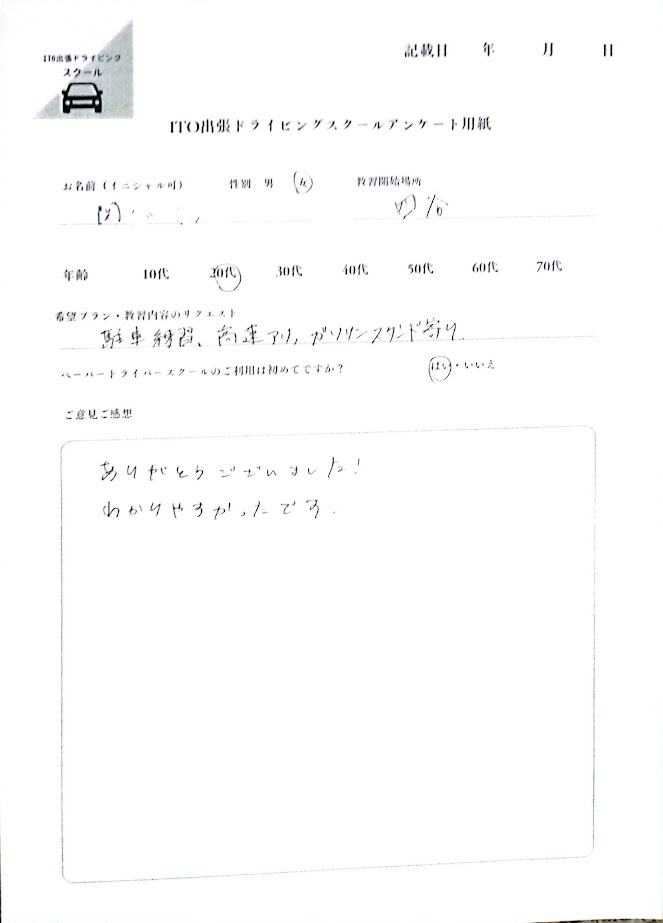 ITO出張ドライビング
スクール
記載日 年 月 日
ITO出張ドライビングスクールアンケート用紙
お名前（イニシャル可） 性別 男 女 教習開始場所
四谷
年齢 10代 20代 30代 40代 50代 60代 70代
希望プラン・教習内容のリクエスト
駐車練習、高速アリ、ガソリンスタンド寄り
ペーパードライバースクールのご利用は初めてですか？ はい・いいえ
ご意見ご感想
ありがとうございました！
わかりやすかったです.